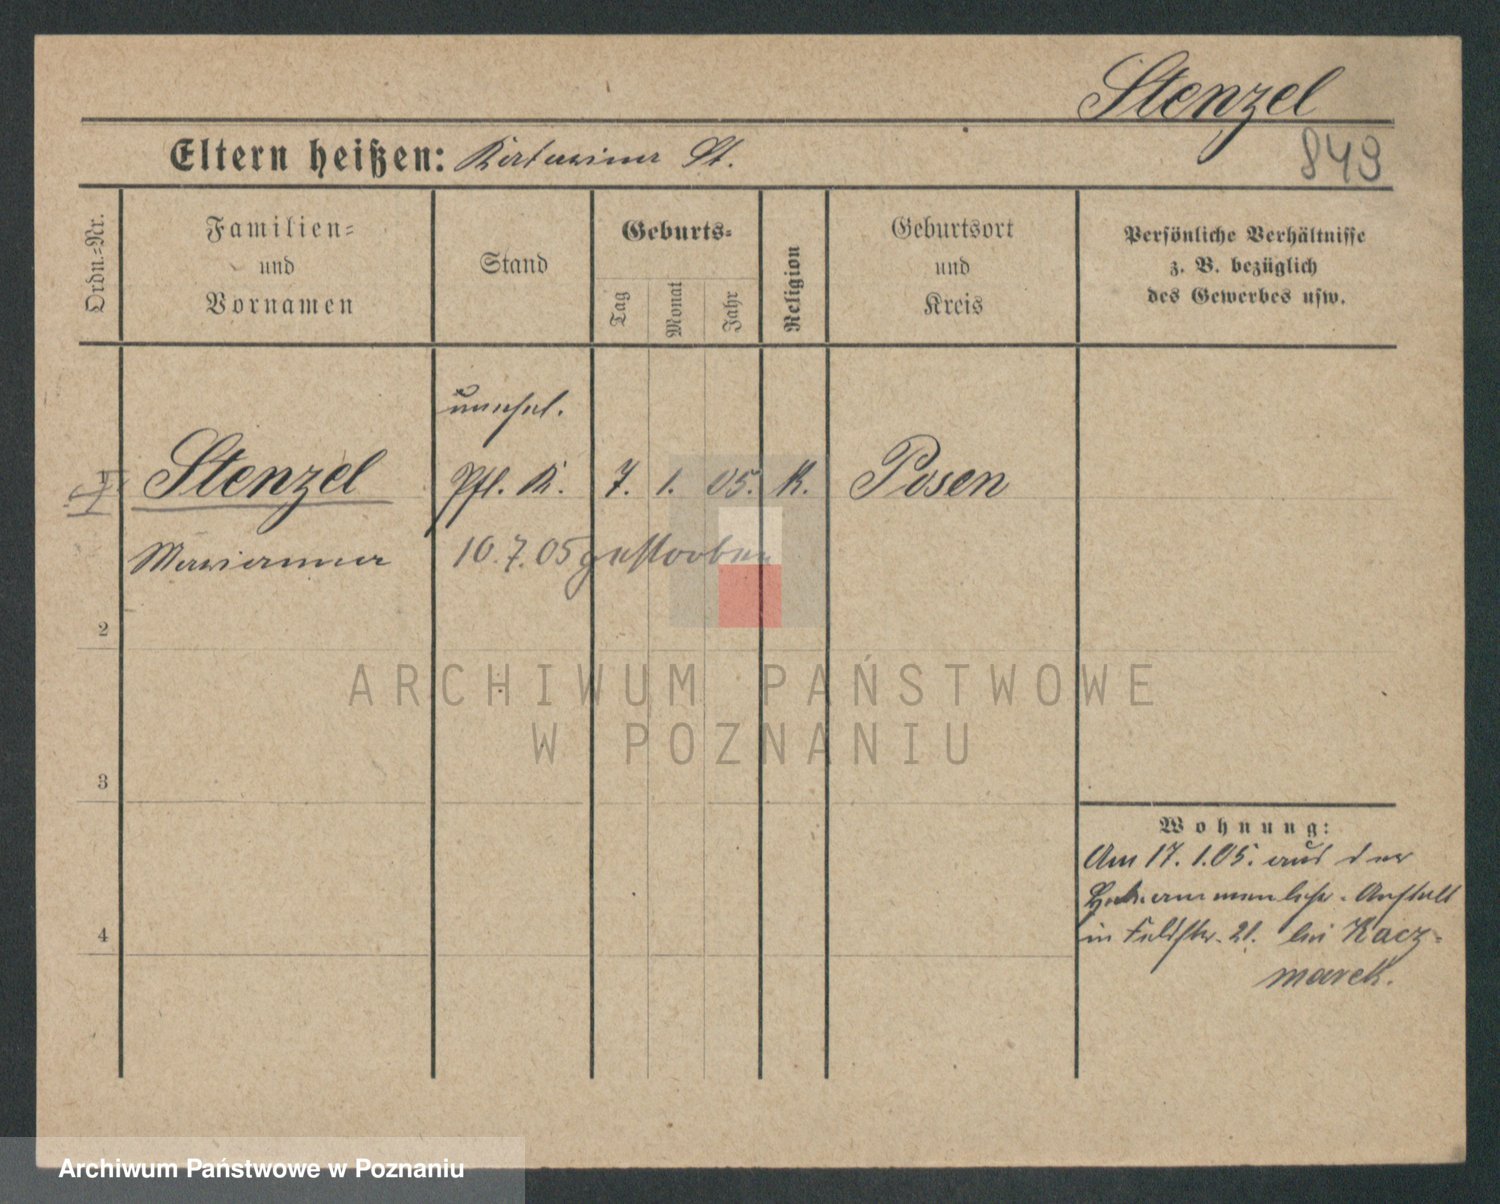 Stenzel
Eltern heißen: Katarina St.
849
Ordn.-Nr.
Familien-
und
Vornamen
Stand
Geburts-
Tag
Monat
Jahr
Religion
Geburtsort
und
Kreis
Persönliche Verhältnisse
z. B. bezüglich
des Gewerbes usw.
unehel.
Stenzel Pfl. K. 7. 1. 05. K. Posen
Marianna 10.7.05 gestorben
2
3
4
Wohnung:
Am 17. 1. 05. aus der
Hebammenlehr-Anstalt
in Feldstr. 21. bei Kacz-
marek.
ARCHIWUM PAŃSTWOWE
W POZNANIU
Archiwum Państwowe w Poznaniu